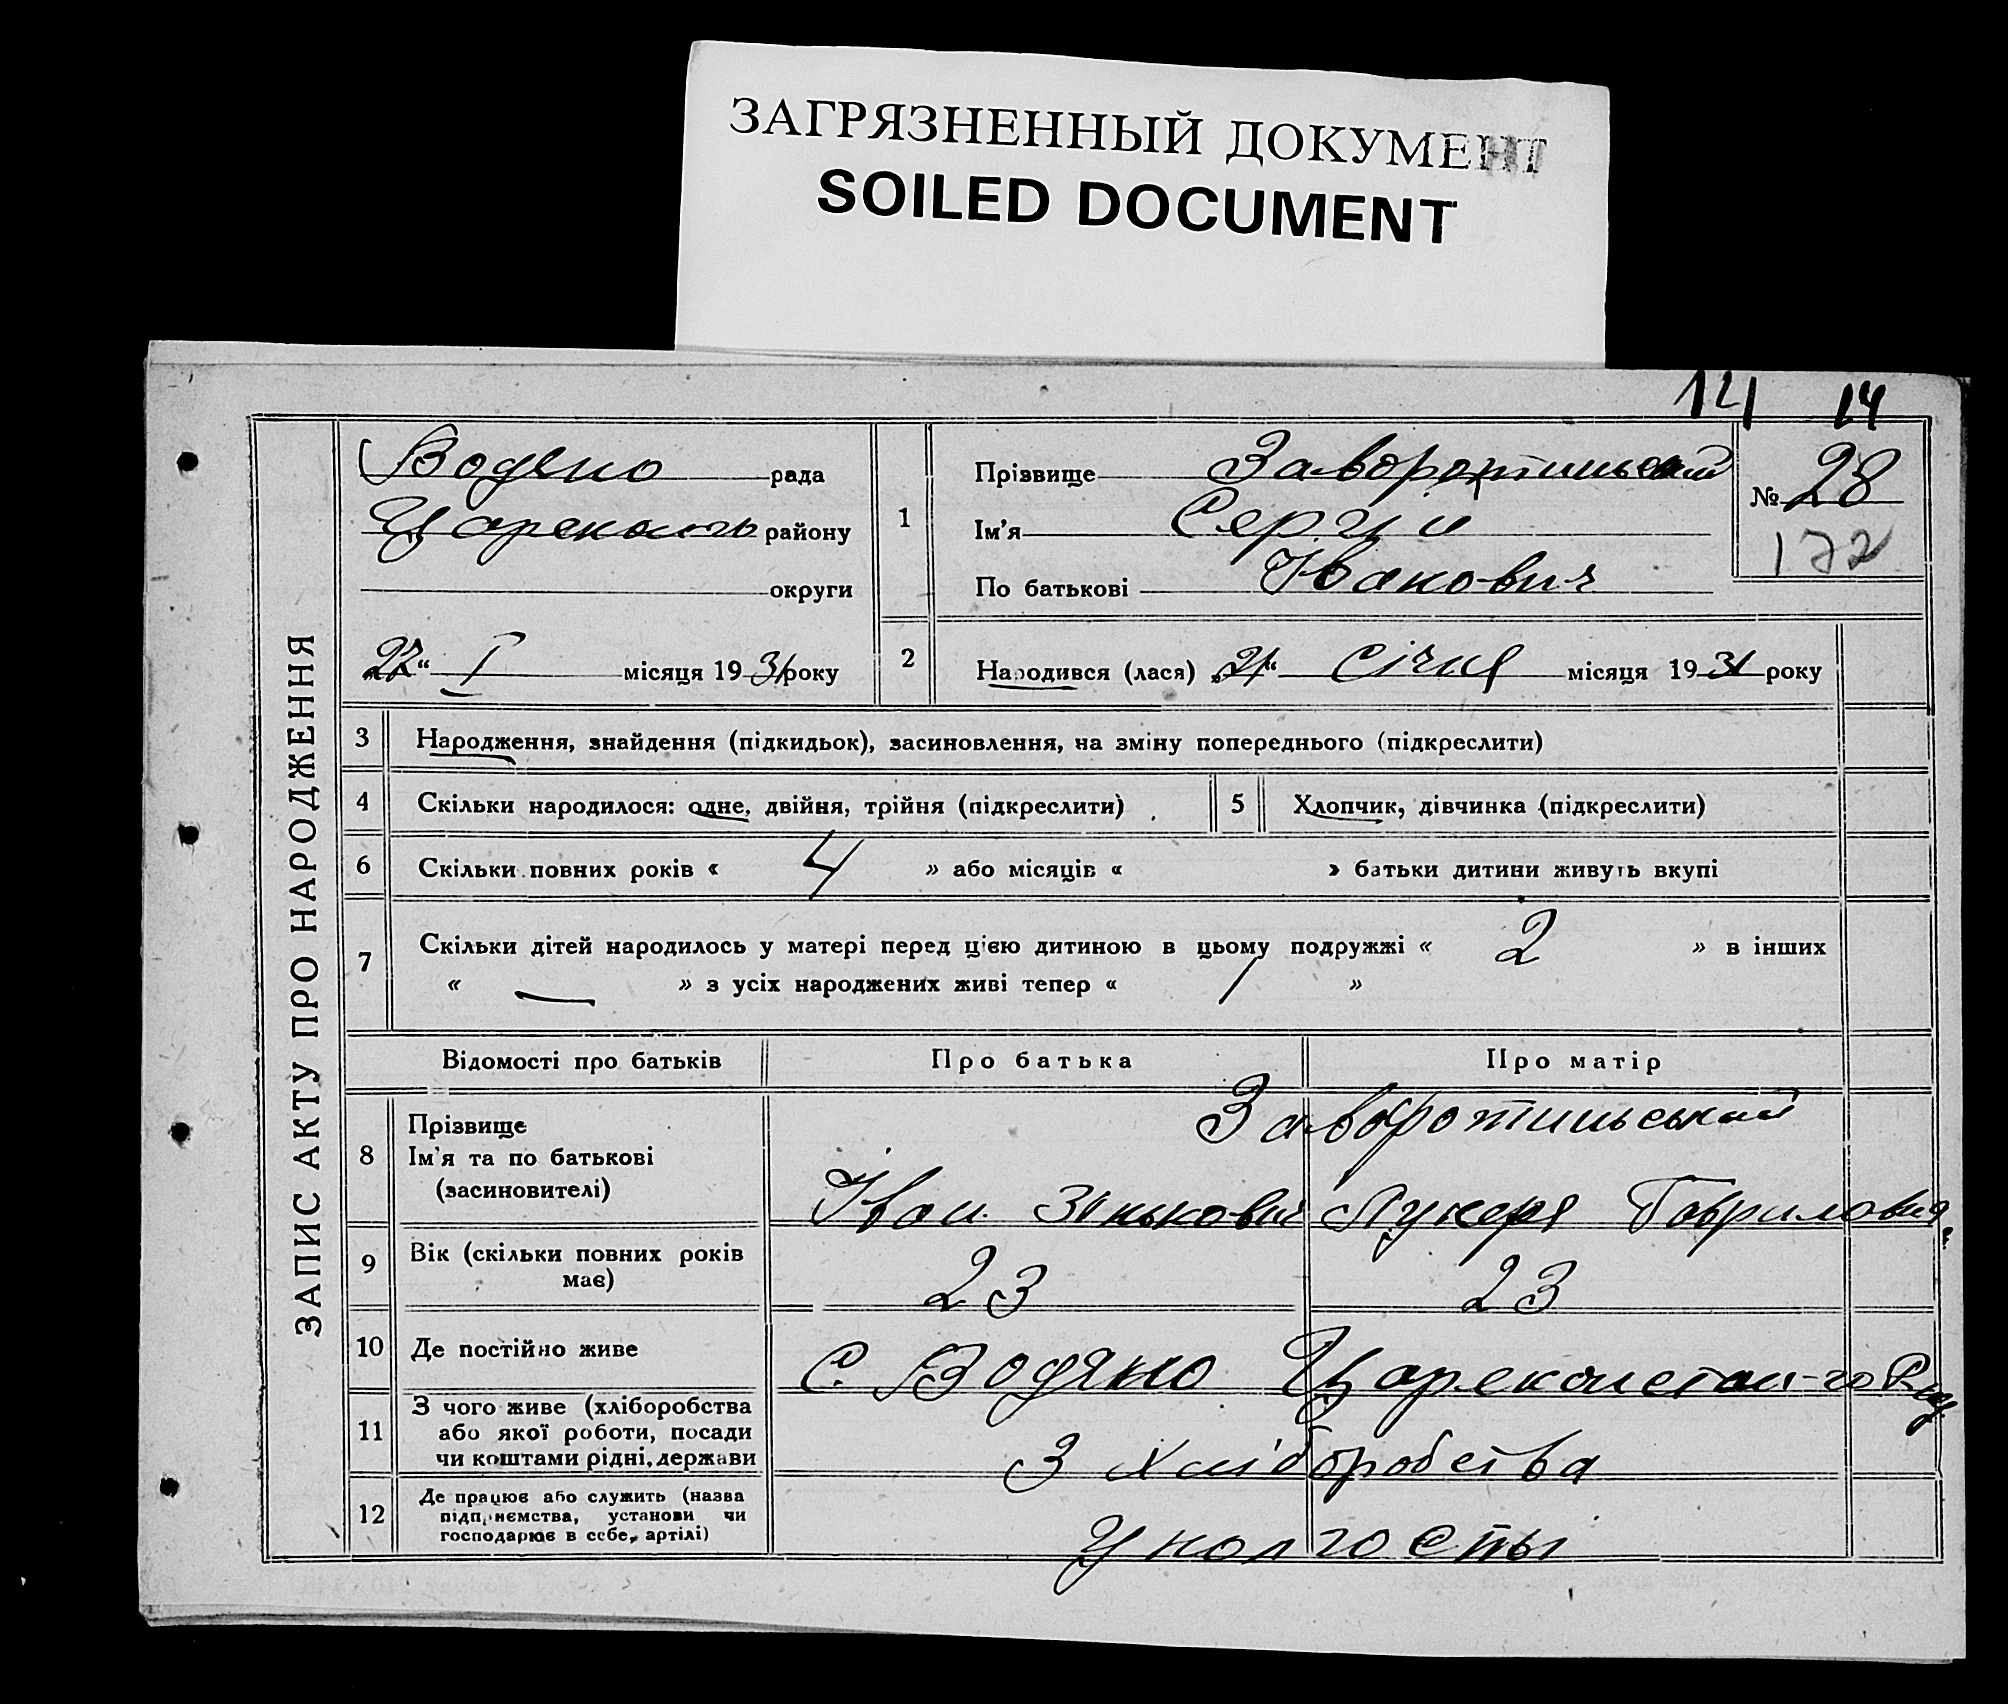 ЗАГРЯЗНЕННЫЙ ДОКУМЕНТ
SOILED DOCUMENT
14
ЗАПИС АКТУ ПРО НАРОДЖЕННЯ
Водяно рада
району
округи
22 " I місяця 1931 року
1
Прізвище Заворотинський
Ім'я Сергій
По батькові Іванович
№ 28
172
2
Народився (лася) „21" Січня місяця 1931 року
3 Народження, знайдення (підкидьок), засиновлення, на зміну попереднього (підкреслити)
4 Скільки народилося: одне, двійня, трійня (підкреслити) 5 Хлопчик, дівчинка (підкреслити)
6 Скільки повних років « 4 » або місяців « » батьки дитини живуть вкупі
7 Скільки дітей народилось у матері перед цією дитиною в цьому подружжі « 2 » в інших
« — » з усіх народжених живі тепер « 1 »
Відомості про батьків Про батька Про матір
8 Прізвище
Ім'я та по батькові
(засиновителі)
Заворотинський
Іван Зінькович Лукеря Гаврилов
9 Вік (скільки повних років
має)
23 23
10 Де постійно живе С. Водяно Царекостан-го Р-ну
11 З чого живе (хліборобства
або якої роботи, посади
чи коштами рідні, держави
З хліборобства
12 Де працює або служить (назва
підприємства, установи чи
господарює в себе, артілі)
У колгоспі